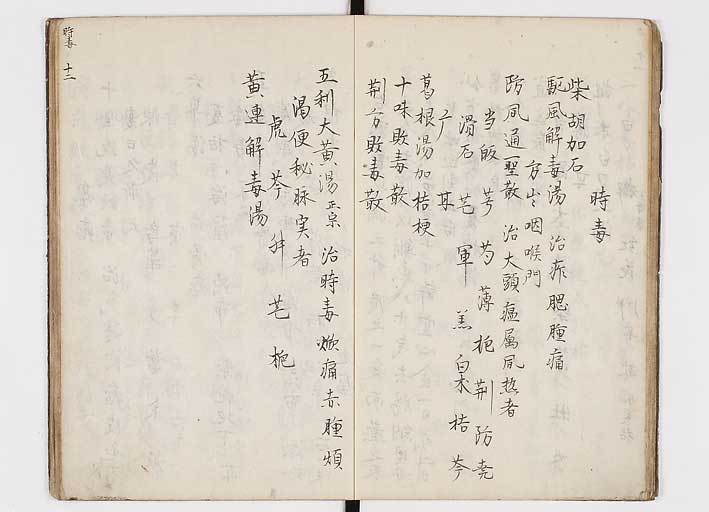 時毒
柴胡加石
駆風解毒湯 治痄腮腫痛
方出咽喉門
防風通聖散 治大頭瘟属風熱者
当皈芎芍薄梔荆防尭
滑石芒軍羔白朮桔芩
甘
葛根湯加桔梗
十味敗毒散
荆方敗毒散
五利大黄湯 正宗 治時毒焮痛赤腫煩
渇便秘脉実者
虎芩升芒梔
黄連解毒湯
時毒 十二